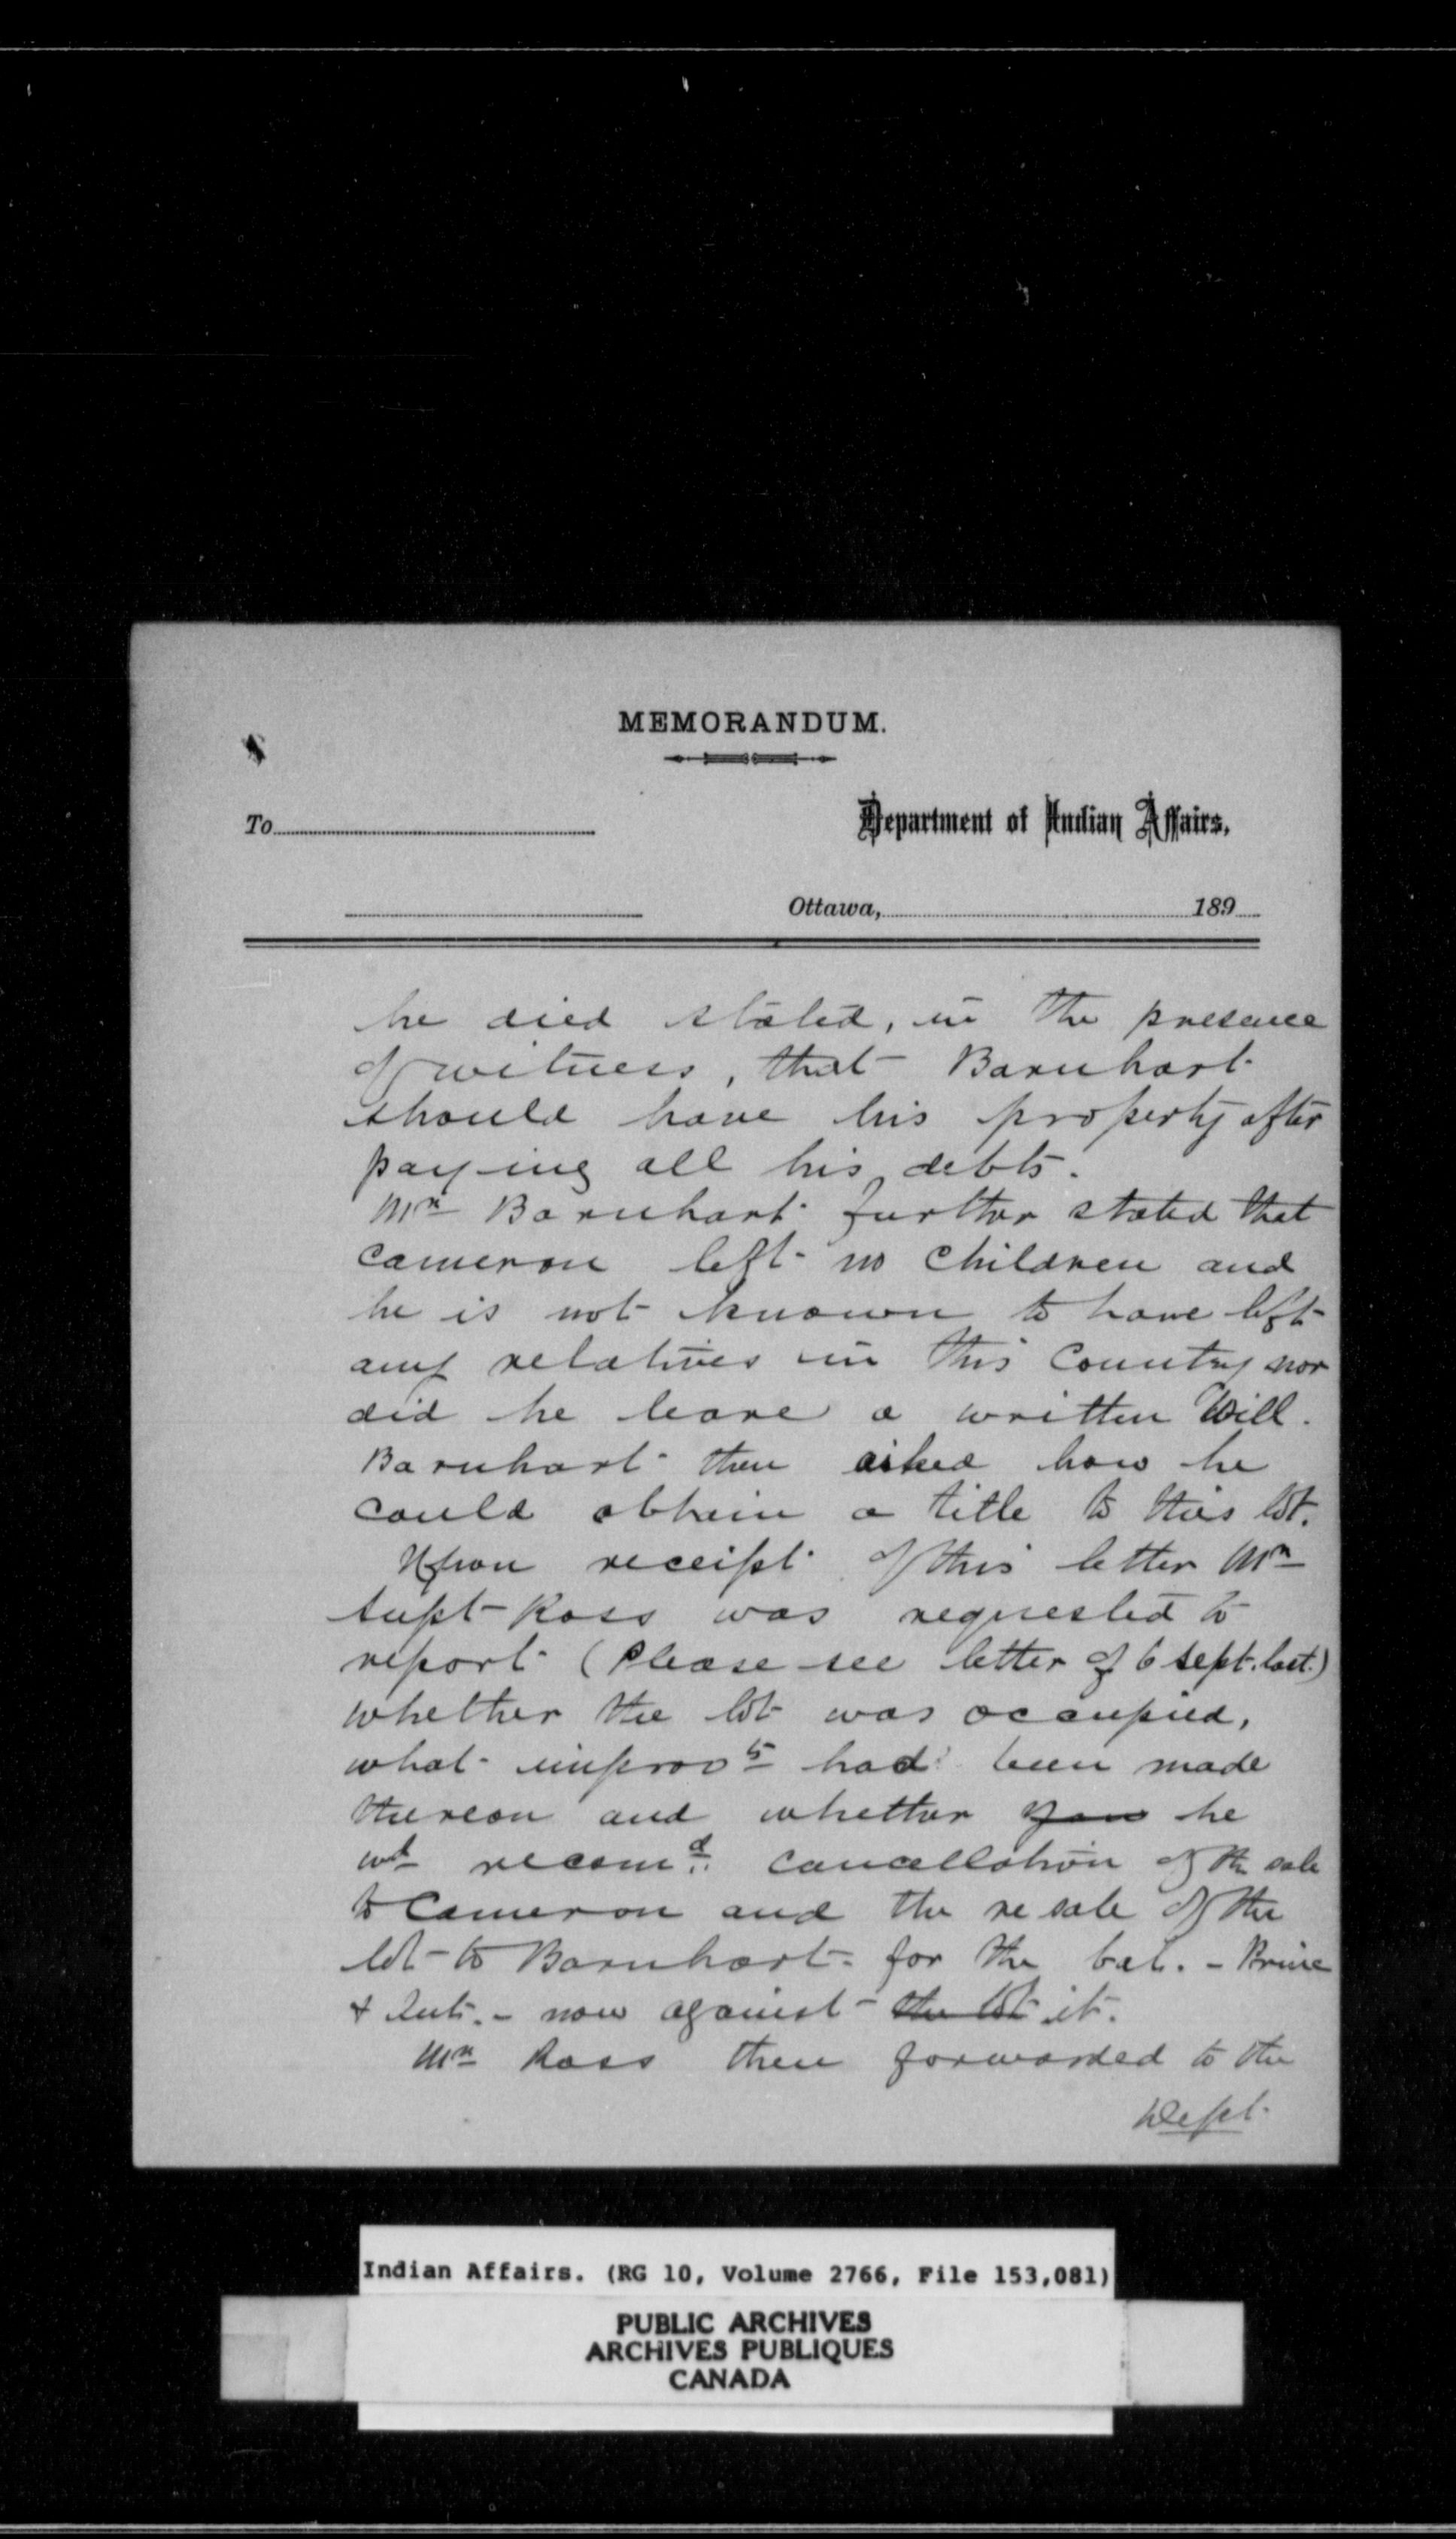 MEMORANDUM.
To
Department of Indian Affairs,
Ottawa, 189
he died stated, in the presence
of witness, that Barnhart
should have his property after
paying all his debts.
Mr Barnhart further stated that
Cameron left no children and
he is not known to have left
any relatives in this Country nor
did he leave a written Will.
Barnhart then asked how he
could obtain a title to this lot.
Upon receipt of this letter Mr
Supt Ross was requested to
report (Please see letter of 6 Sept. last.)
whether the lot was occupied,
what improvts had been made
thereon and whether you he
wd recomd cancellation of the sale
to Cameron and the re sale of the
lot to Barnhart for the bal. - Princ
& Int. - now against the lot it.
Mr Ross then forwarded to the
Dept.
Indian Affairs. (RG 10, Volume 2766, File 153,081)
PUBLIC ARCHIVES
ARCHIVES PUBLIQUES
CANADA